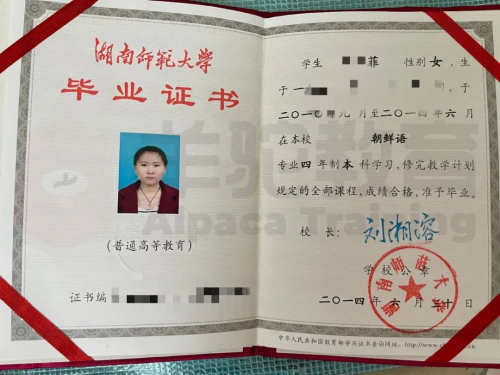 湖南师範大学
毕业证书
(普通高等教育)
证书编
学生 菲 性别 女，生
于一 ，
二〇一〇年九月至二〇一四年六月
在本校 朝鲜语
专业 四 年制 本 科学习，修完教学计划
规定的全部课程，成绩合格，准予毕业。
校 长： 刘湘溶
学校公章
湖南师范大学
二〇一四年 六 月 三十 日
中华人民共和国教育部学历证书查询网址：http://www.
羊驼教育
Alpaca Training